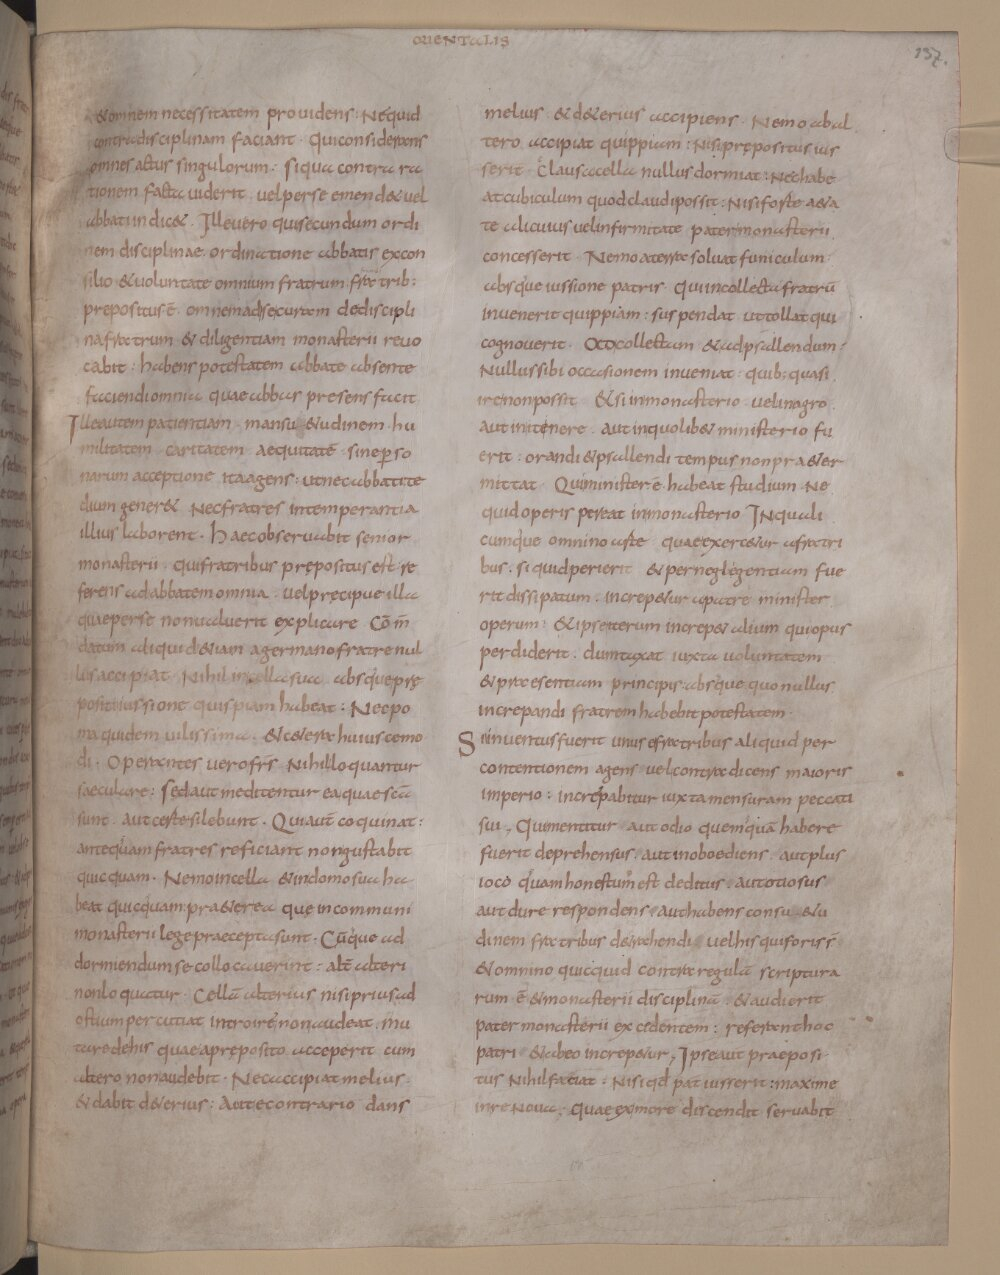 ORIENTALIS
137.
& omnem necessitatem providens. Nequid
contra disciplinam faciant. Qui considerans
omnes actus singulorum. siqua contra ra
tionem facta viderit. vel per se emend& vel
abbati indic&. Ille vero qui secundum ordi
nem disciplinae. ordinatione abbatis ex con
silio & voluntate omnium fratrum frib:
prepositus ē. omnem ad se curam de discipli
na fratrum & diligentiam monasterii revo
cabit. habens potestatem abbate absente
faciendi omnia quae abbas presens facit
Ille autem patientiam. mansu&udinem. hu
militatem. caritatem. aequitatē. sine perso
narum acceptione ita agens: ut nec abbati te
dium gener&. Nec fratres intemperantia
illius laborent. Haec observabit senior
monasterii. qui fratribus prepositus est re
ferens ad abbatem omnia. vel precipue illa
quae per se non valuerit explicare. Cōm̄
datum aliquid &iam a germano fratre nul
lus accipiat. Nihil in cella sua absque pre
positi iussione quispiam habeat. Nec po
ma quidem vilissima. & c&era huiuscemo
di. Operantes vero frs̄ Nihil loquantur
saeculare: Sed aut meditentur ea quae scā
sunt. aut certe silebunt. Qui autē coquinat:
antequam fratres reficiant non gustabit
quicquam. Nemo in cella & in domo sua ha
beat quicquam pra&erea que in communi
monasterii lege praecepta sunt. Cūque ad
dormiendum se collocaverint: altē alteri
non loquatur. Cellā alterius nisi prius ad
ostium percutiat introire non audeat. mu
tare de his quae a preposito acceperit cum
altero non audebit. Nec accipiat melius.
& dabit d&erius: Aut e contrario dans
melius. & d&erius accipiens. Nemo ab al
tero accipiat quippiam: Nisi prepositus ius
serit. Clausa cella nullus dormiat: Nec habe
at cubiculum quod claudi possit: Nisi forte a&a
te alicuius vel infirmitate pater monasterii
concesserit. Nemo a terra solvat funiculum
absque iussione patris. Qui in collecta fratrū
invenerit quippiam: suspendat ut tollat qui
cognoverit. Ad collectam & ad psallendum:
Nullus sibi occasionem inveniat. quib; quasi
ire non possit. & si in monasterio. vel in agro
aut in itenere. aut in quolib& ministerio fu
erit: orandi & psallendi tempus non pra&er
mittat. Qui minister ē habeat studium. Ne
quid operis pereat in monasterio. In quali
cumque omnino arte quae exerc&ur a fratri
bus. si quid perierit & per neglegentiam fue
rit dissipatum. increp&ur a patre minister
operum: & ipse iterum increp& alium qui opus
perdiderit. dumtaxat iuxta voluntatem
& praesentiam principis. absque quo nullus
increpandi fratrem habebit potestatem.
Si inventus fuerit unus e fratribus aliquid per
contentionem agens vel contradicens maioris
imperio: increpabitur iuxta mensuram peccati
sui. Qui mentitur aut odio quemquā habere
fuerit deprehensus. aut inoboediens. aut plus
ioco quam honestum est deditus. aut otiosus
aut dure respondens. aut habens consu&u
dinem fratribus d&rahendi. vel his qui foris s̄
& omnino quicquid contra regulā scriptura
rum ē & monasterii disciplinā. & audierit
pater monasterii excedentem: referant hoc
patri. & ab eo increp&ur. Ipse aut praeposi
tus Nihil faciat. Nisi qd pat iusserit: maxime
in re Nova. Quae ex more discendit servabit